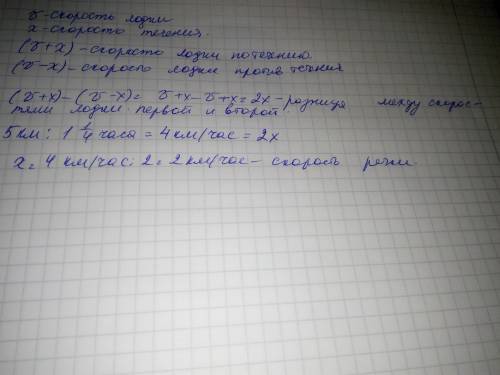 v-скорость лодки
x-скорость течения.
(v+x)-скорость лодки по течению
(v-x)-скорость лодки против течения
(v+x)-(v-x)= v+x-v+x=2x-разница между скорос-
тями лодки первой и второй
5 км: 1 1/4 часа = 4 км/час = 2x
x= 4 км/час: 2 = 2 км/час- скорость реки.